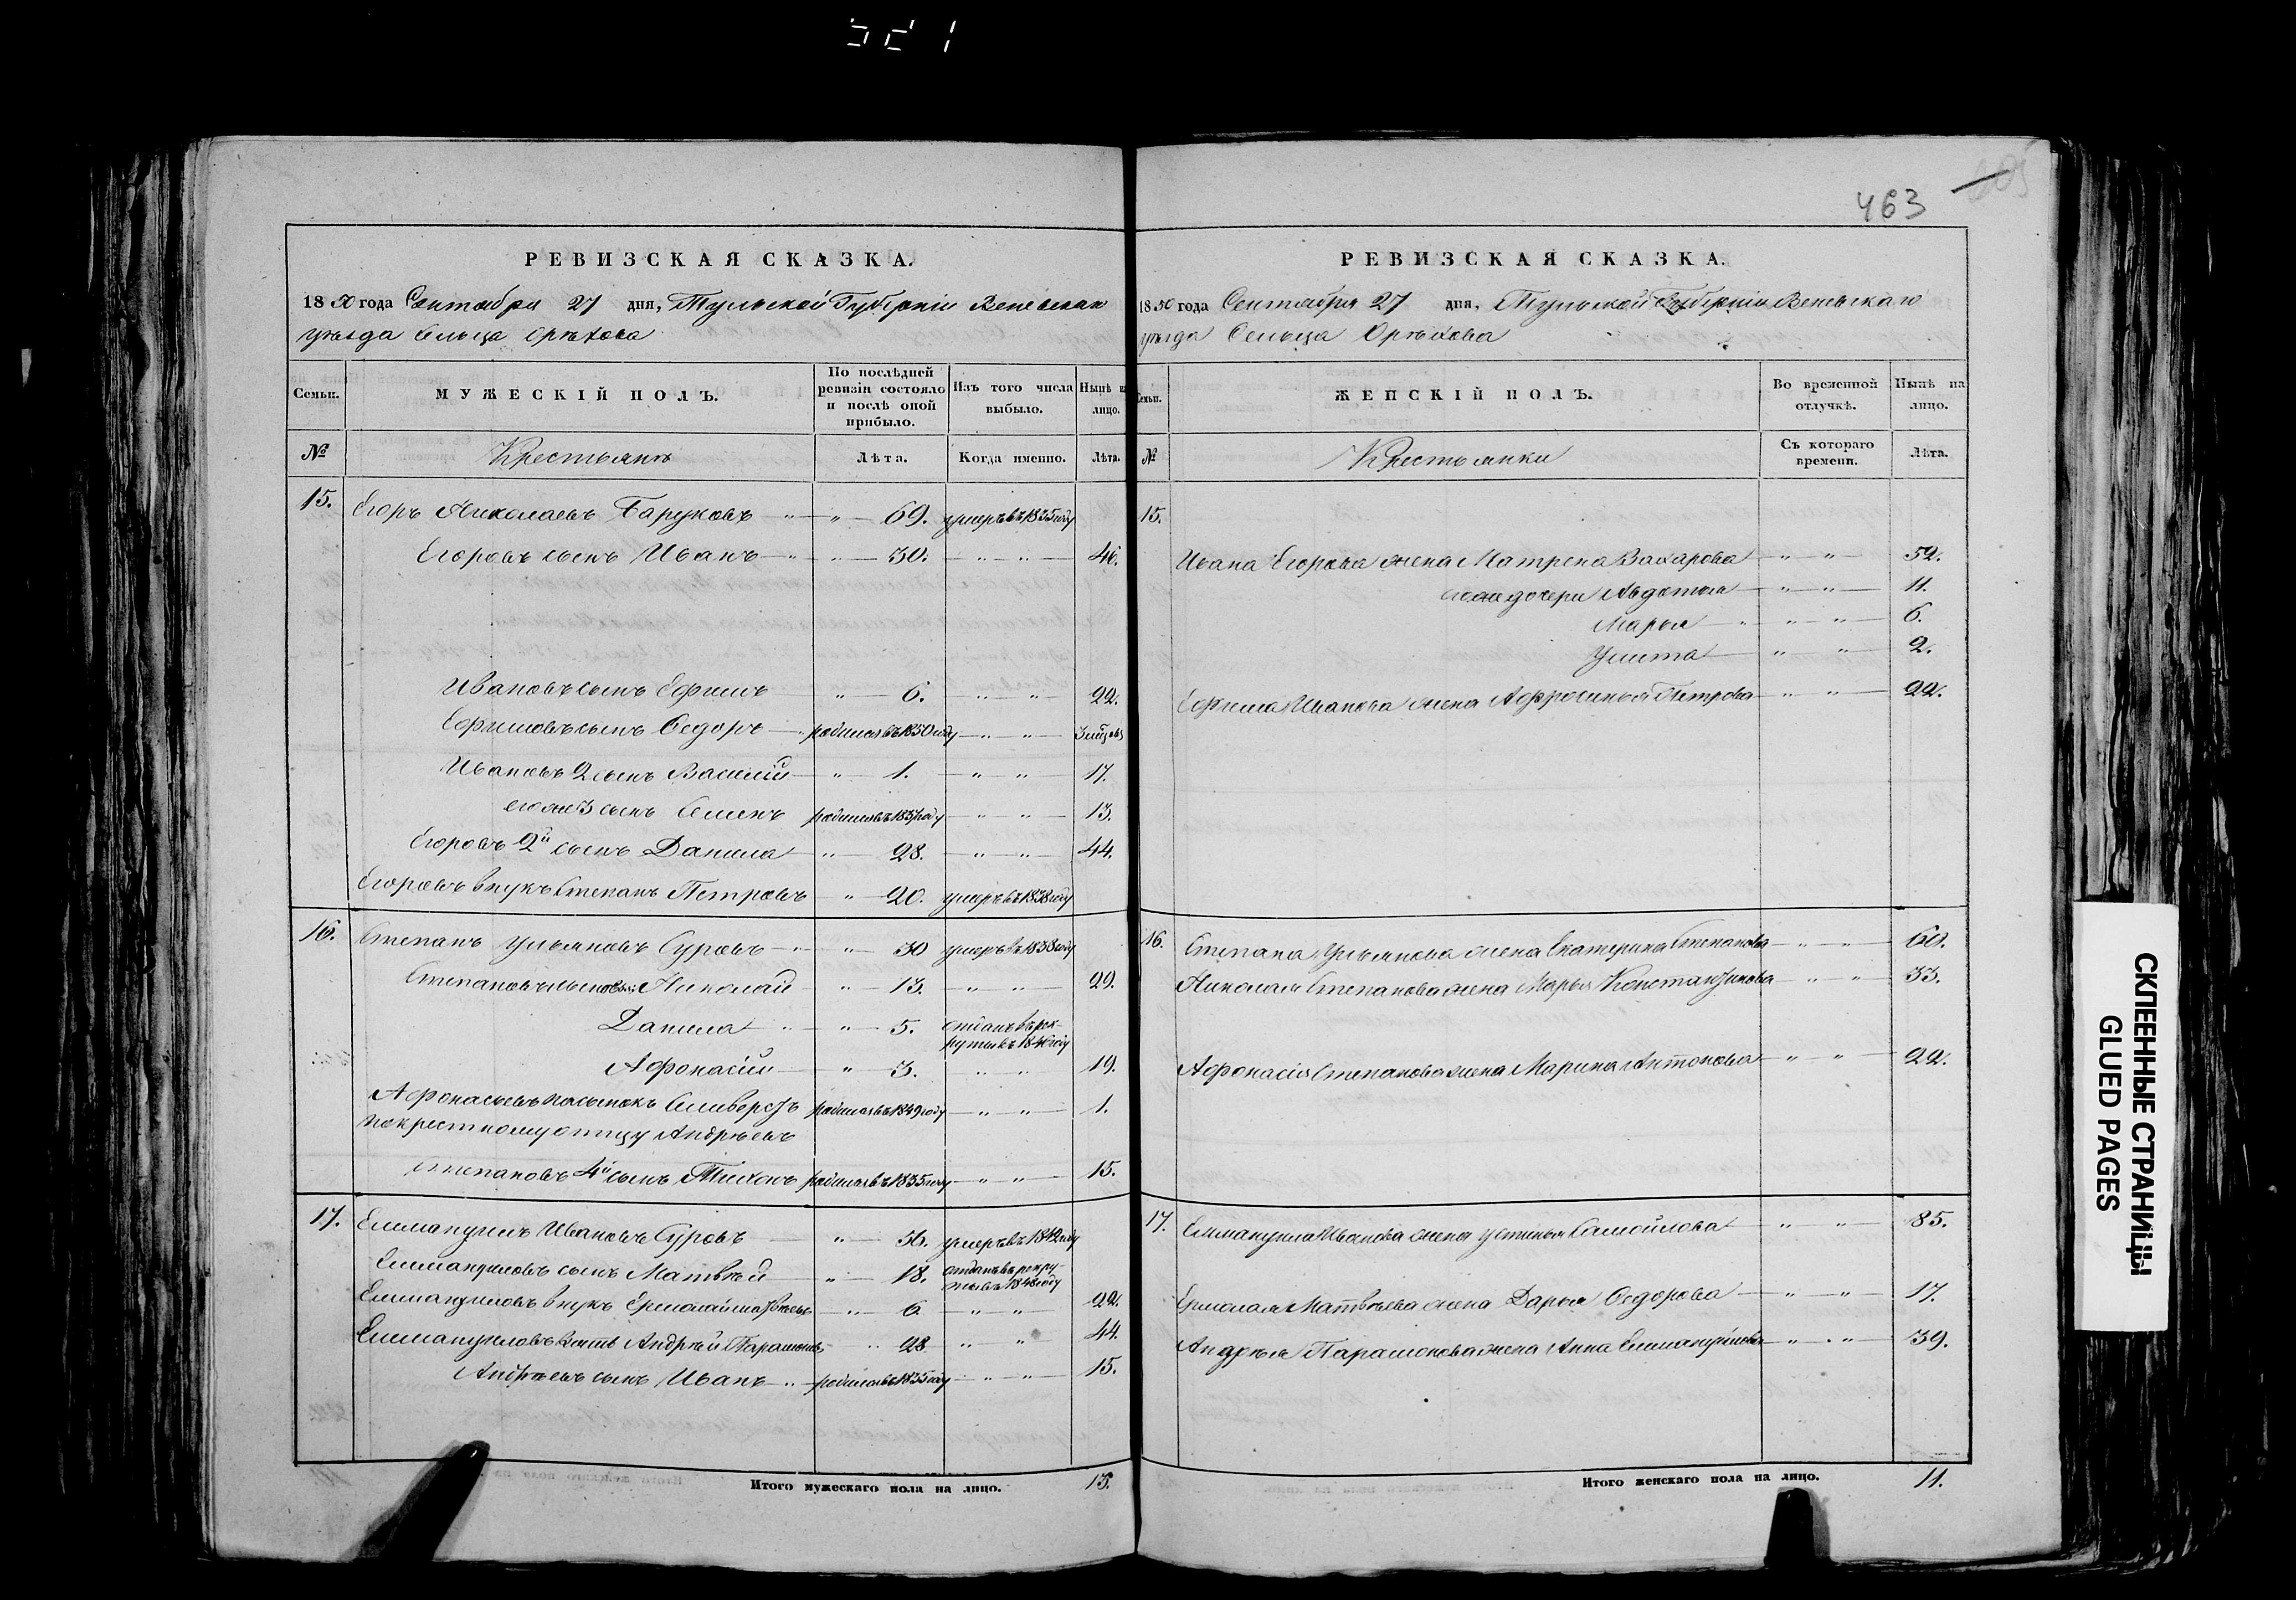 463
РЕВИЗСКАЯ СКАЗКА.
1850 года Сентября 27 дня, Тульской Губерніи Веневскаго
уѣзда сельца Орѣхова
Семьи.
МУЖЕСКІЙ ПОЛЪ.
По послѣдней ревизіи состояло и послѣ оной прибыло.
Изъ того числа выбыло.
Нынѣ на лицо.
№
Крестьянъ
Лѣта.
Когда именно.
Лѣта.
15. Егоръ Николаевъ Баруковъ " 69. умеръ въ 1835 году
Егоровъ сынъ Иванъ " 30. " " 46.
Ивановъ сынъ Ефимъ " 6. " " 22.
Ефимовъ сынъ Ѳедоръ родился въ 1850 году " " 3 мѣсяц
Ивановъ 2 сынъ Василій " 1. " " 17.
его же 3 сынъ Семенъ родился въ 1837 году " " 13.
Егоровъ 2й сынъ Данила " 28. " " 44.
Егоровъ внукъ Степанъ Петровъ " 20. умеръ въ 1838 году
16. Степанъ Ульяновъ Суровъ " 30 умеръ въ 1838 году
Степановы сыновья: Николай " 13. " " 29.
Данила " 5. отданъ въ рек-
руты въ 1846 году
Афонасій " 3. " " 19.
Афонасьевъ пасынокъ Селиверстъ родился въ 1849 году " " 1.
по крестному отцу Андрѣевъ
Степановъ 4й сынъ Тихонъ родился въ 1835 году " " 15.
17. Еммануилъ Ивановъ Суровъ " 56. умеръ въ 1842 году
Еммануиловъ сынъ Матвѣй " 18. отданъ въ рекру-
ты въ 1848 году
Еммануиловъ внукъ Ермолай Матвѣевъ " 6 " " 22.
Еммануиловъ зять Андрѣй Парамоновъ " 28 " " 44.
Андрѣевъ сынъ Иванъ родился въ 1835 году " " 15.
Итого мужескаго пола на лицо. 13.
РЕВИЗСКАЯ СКАЗКА.
1850 года Сентября 27 дня, Тульской Губерніи Веневскаго
уѣзда Сельца Орѣхова
Семьи.
ЖЕНСКІЙ ПОЛЪ.
Во временной отлучкѣ.
Нынѣ на лицо.
№
Крестьянки
Съ котораго времени.
Лѣта.
15.
Ивана Егорова жена Матрена Захарова " " 52.
его же дочери Авдотья " " 11.
Марья " " 6.
Улита " " 2.
Ефима Иванова жена Афросинья Петрова " " 22.
16. Степана Ульянова жена Екатерина Степанова " " 60.
Николая Степанова жена Марья Константинова " " 33.
Афонасія Степанова жена Марина Антонова " " 22.
17. Еммануила Иванова жена Устинья Самойлова " " 85.
Ермолая Матвѣева жена Дарья Ѳедорова " " 17.
Андрѣя Парамонова жена Анна Еммануилова " " 39.
Итого женскаго пола на лицо. 11.
СКЛЕЕННЫЕ СТРАНИЦЫ
GLUED PAGES